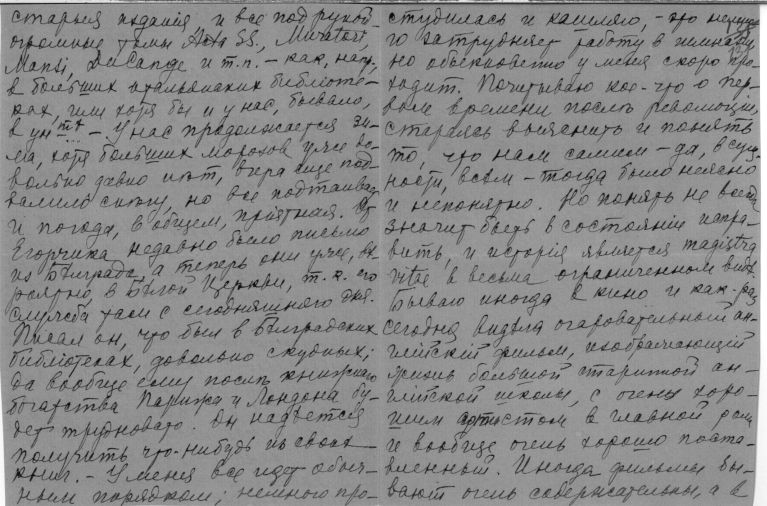 старыя изданія и все под рукой
огромные томы Acta SS., Muratori,
Mansi, DuCange и т.п. – как, напр.,
в больших итальянских библиоте-
ках, или хотя бы и у нас, бывало,
в ун-тѣ – У нас продолжается зи-
ма, хотя больших морозов уже до-
вольно давно нѣт, вчера еще под-
валило снѣжку, но все подтаивает
и погода, в общем, прiятная. От
Егорчика недавно было письмо
из Бѣлграда, а теперь они уже, вѣ-
роятно, в Бѣлой Церкви, т.к. его
служба там с сегодняшняго дня.
Писал он, что был в Бѣлградских
библіотеках, довольно скудных;
да вообще ему послѣ книжнаго
богатства Парижа и Лондона бу-
дет трудновато. Он надѣется
получить что-нибудь из своих
книг. – У меня все идет обыч-
ным порядком; немного про-
студилась и кашляю, – это
го затрудняет работу в гимназіи,
но обыкновенно у меня скоро про-
ходит. Почитываю кое-что о пер-
вом времени послѣ революціи,
стараясь выяснить и понять
то, что нам самим – да, в сущ-
ности, всѣм – тогда было неясно
и непонятно. Но понять не всегда
значит быть в состояніи испра-
вить, и исторія является magistra
vitae в весьма ограниченном видѣ.
Бываю иногда в кино и как-раз
сегодня видѣла очаровательный ан-
глійскій фильм, изображающій
жизнь большой старинной ан-
глійской школы, с очень хоро-
шим артистом в главной роли
и вообще очень хорошо поста-
вленный. Иногда фильмы бы-
вают очень содержательны, а в